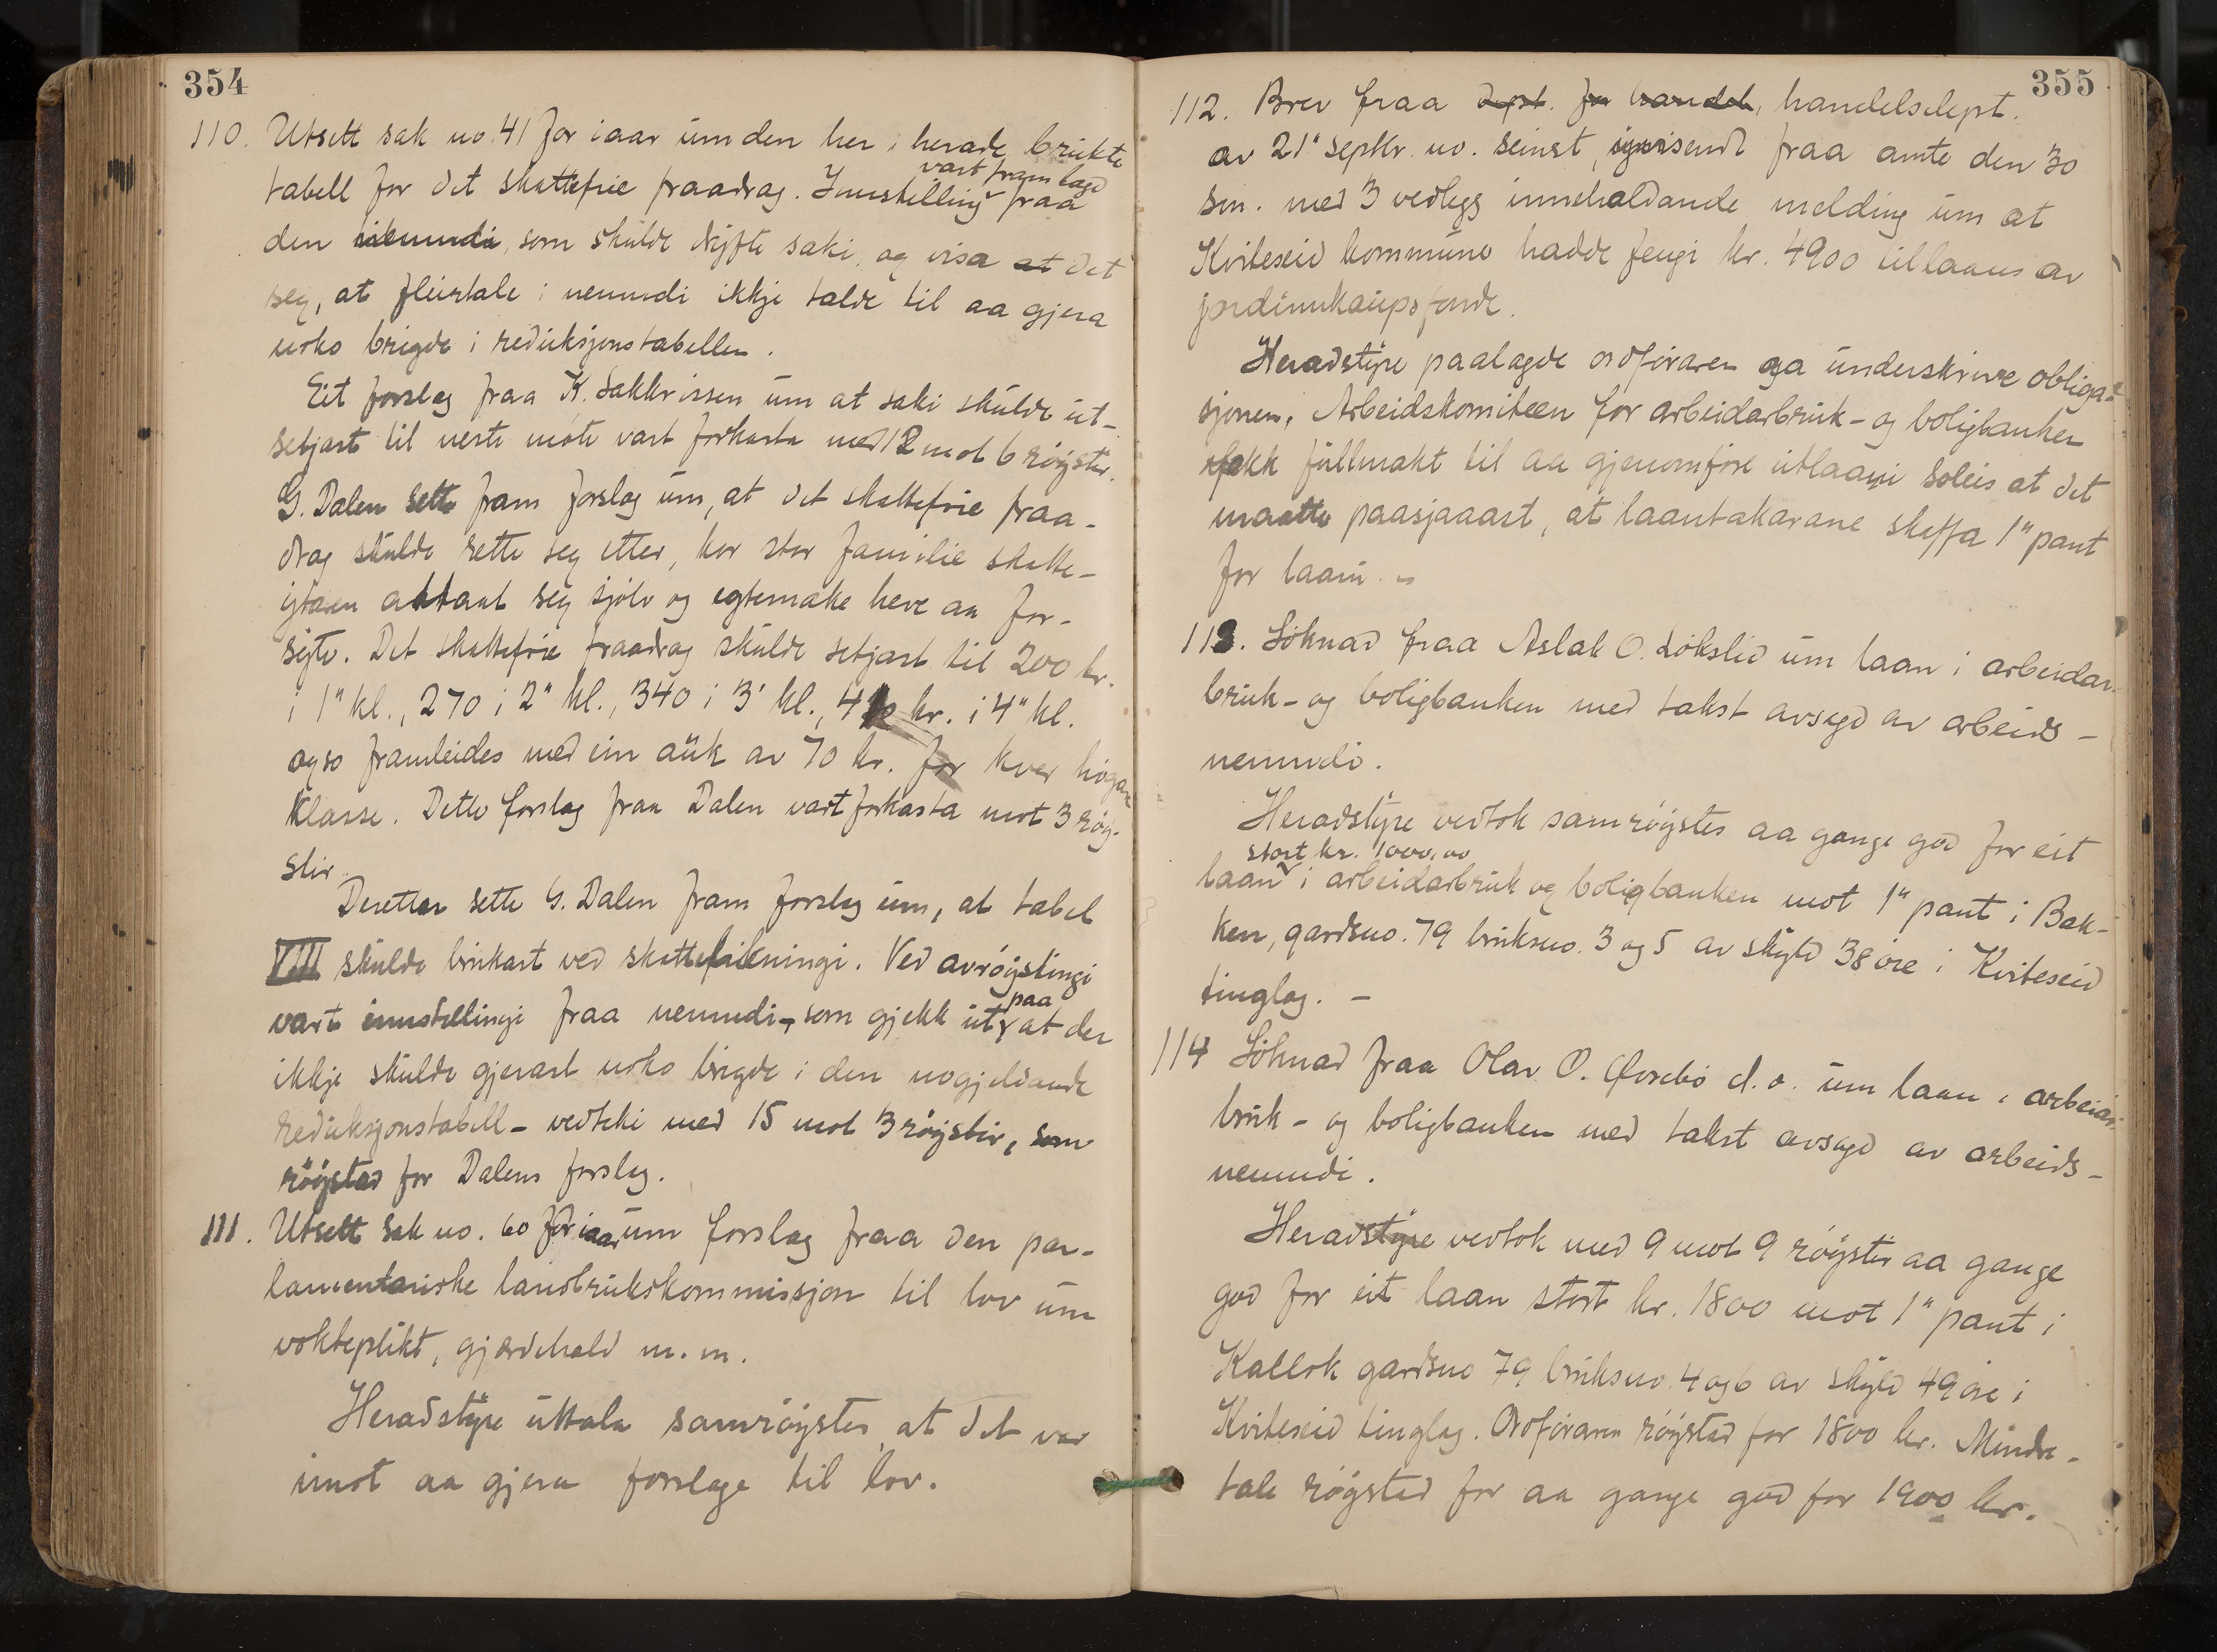 354
110. Utsett sak no. 41 for iaar um den her i herade brukte
tabell for det skattefrie fraadrag. Innstilling vart framlagd fraa
den nemndi, som skulde drýfte saki, og visa at det
seg, at fleirtale i nemndi ikkje talde til aa gjera
noko brigde i reduksjonstabellen.
Eit forslag fraa K. Sakkrissen um at saki skulde ut-
setjast til neste møte vart forkasta med 12 mot 6 røyster.
G. Dalen sette fram forslag um, at det skattefrie fraa-
drag skulde rette seg etter, kor stor familie skatte-
ytaren attaat seg sjølv og egtemake heve aa for-
syte. Det skattefrie fraadrag skulde setjast til 200 kr.
i 1" kl., 270 i 2" kl., 340 i 3' kl., 410 kr. i 4" kl.
og so framleides med ein auk av 70 kr. for kver høgare
klasse. Dette forslag fraa Dalen vart forkasta mot 3 røy-
stir.
Deretter sette G. Dalen fram forslag um, at tabel
VIII skulde brukast ved skattelikningi. Ved avrøystingi
vart innstillingi fraa nemndi, som gjekk ut paa at der
ikkje skulde gjerast noko brigde i den nogjeldande
reduksjonstabell - vedteki med 15 mot 3 røystir, som
røystad for Dalens forslag.
111. Utsett sak no. 60 for iaar um forslag fraa den par-
lamentariske landbrukskommissjon til lov um
vokteplikt, gjærdehald m. m.
Heradstyre uttala samrøystes at det var
imot aa gjera forslage til lov.
355
112. Brev fraa dept. for handel, handelsdept.
av 21" septbr. no. seinst, innsendt fraa amte den 30
sm. med 3 vedlegg innehaldande melding um at
Kviteseid kommune hadde fengi kr. 4900 til laans av
jordinnkaupsfonde.
Heradstyre paalagde ordføraren aa underskrive obliga-
sjonen, Arbeidskomiteen for arbeidarbruk- og boligbanken
fekk fullmakt til aa gjenomføre utlaani soleis at det
maatte paasjaaast, at laantakarane skaffa 1" pant
for laani. -
113. Søknad fraa Aslak O. Løkslid um laan i arbeidar-
bruk- og boligbanken med takst avsagd av arbeids-
nemndi.
Heradstyre vedtok samrøystes aa gange god for eit
laan stort kr. 1000,00 i arbeidarbruk og boligbanken mot 1" pant i Bak-
ken, gardsno. 79 bruksno. 3 og 5 av skyld 38 øre i Kviteseid
tinglag. -
114 Søknad fraa Olav O. Øvrebø d. o. um laan i arbeidar-
bruk- og boligbanken med takst avsagd av arbeids-
nemndi.
Heradstyre vedtok med 9 mot 9 røyster aa gange
god for eit laan stort kr. 1800 mot 1" pant i
Kallok gardsno 79 bruksno. 4 og 6 av skyld 49 øre i
Kviteseid tinglag. Ordføraren røystad for 1800 kr. Mindre-
tale røystad for aa gange god for 1900 kr.